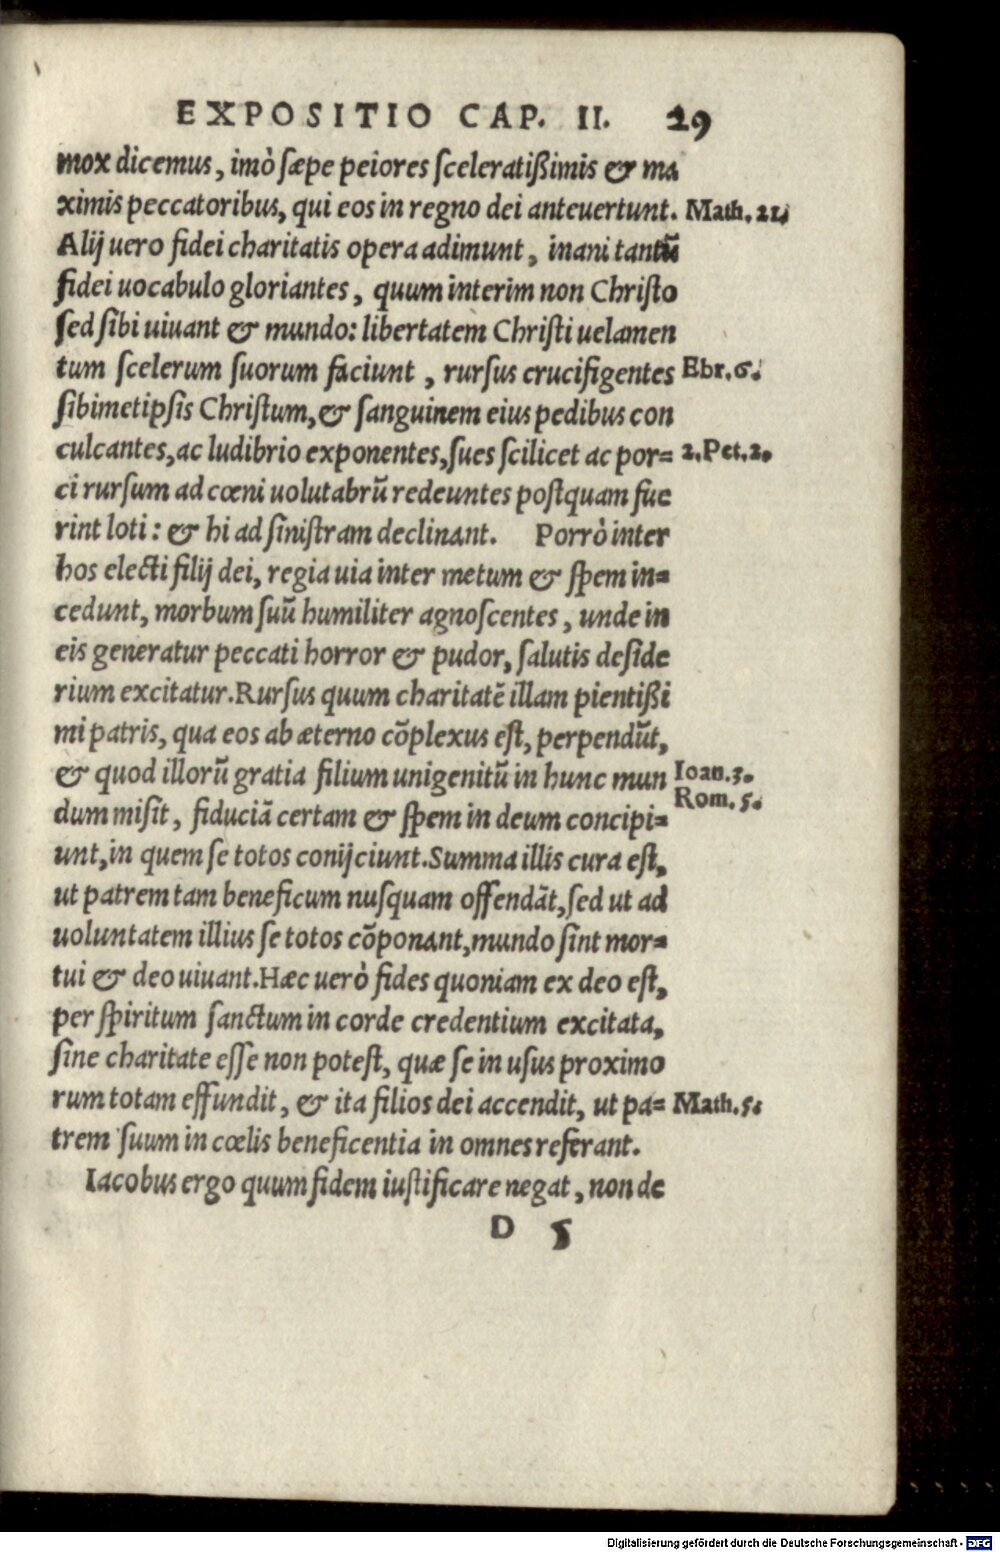 EXPOSITIO CAP. II. 29
mox dicemus, imò sæpe peiores sceleratißimis & ma
ximis peccatoribus, qui eos in regno dei anteuertunt. Math. 21.
Alij uero fidei charitatis opera adimunt, inani tantũ
fidei uocabulo gloriantes, quum interim non Christo
sed sibi uiuant & mundo: libertatem Christi uelamen
tum scelerum suorum faciunt, rursus crucifigentes Ebr. 6.
sibimetipsis Christum, & sanguinem eius pedibus con
culcantes, ac ludibrio exponentes, sues scilicet ac por= 2. Pet. 2.
ci rursum ad cœni uolutabrũ redeuntes postquam fue
rint loti: & hi ad sinistram declinant. Porrò inter
hos electi filij dei, regia uia inter metum & spem in=
cedunt, morbum suũ humiliter agnoscentes, unde in
eis generatur peccati horror & pudor, salutis deside
rium excitatur. Rursus quum charitatẽ illam pientißi
mi patris, qua eos ab æterno cõplexus est, perpendũt,
& quod illorũ gratia filium unigenitũ in hunc mun Ioan. 3.
Rom. 5.
dum misit, fiduciã certam & spem in deum concipi=
unt, in quem se totos conijciunt. Summa illis cura est,
ut patrem tam beneficum nusquam offendãt, sed ut ad
uoluntatem illius se totos cõponant, mundo sint mor=
tui & deo uiuant. Hæc uerò fides quoniam ex deo est,
per spiritum sanctum in corde credentium excitata,
sine charitate esse non potest, quæ se in usus proximo
rum totam effundit, & ita filios dei accendit, ut pa= Math. 5.
trem suum in cœlis beneficentia in omnes referant.
Iacobus ergo quum fidem iustificare negat, non de
D 5
Digitalisierung gefördert durch die Deutsche Forschungsgemeinschaft - DFG